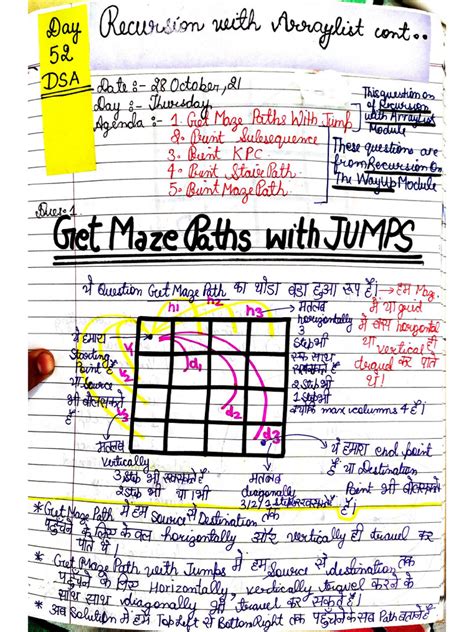 Day
52
DSA
Recursion with Arraylist cont..
Date :- 28 October, 21
Day :- Thursday
Agenda :- 1. Get Maze Paths With Jump
2. Print Subsequence
3. Print KPC
4. Print Stair Path
5. Print Maze Path
This question on
of Recursion
with Arraylist
Module
These questions are
from Recursion On
The Way Up Module
Ques: 1
Get Maze Paths with JUMPS
ये Question Get Maze Path का थोडा बड़ा हुआ रूप है। → हम Maze
में या grid
में बस horizontal
या vertical ही
travel कर पाते
थे।
h1
h2
h3
→ मतलब
horizontally
3
step भी
एक साथ
2 step भी
1 step भी
max columns 4 है।
ये हमारा
Starting
Point है
या Source
भी बोल सकते
हैं
v1
v2
v3
d1
d2
d3
मतलब
vertically
3 step भी
2 step भी या 1 भी
मतलब
diagonally
3/2/1
→ ये हमारा end point
है या Destination
Point भी बोल सकते
हैं।
* Get Maze Path में हम Source से Destination तक
पहुँचने के लिए केवल horizontally और vertically ही travel कर
पाते थे।
* Get Maze Path with Jumps में हम Source से Destination तक
पहुँचने के लिए Horizontally, vertically travel करने के
साथ साथ diagonally भी travel कर सकते हैं।
* अब Solution में हम Top Left से Bottom Right तक पहुँचने के सब Path बताने हैं